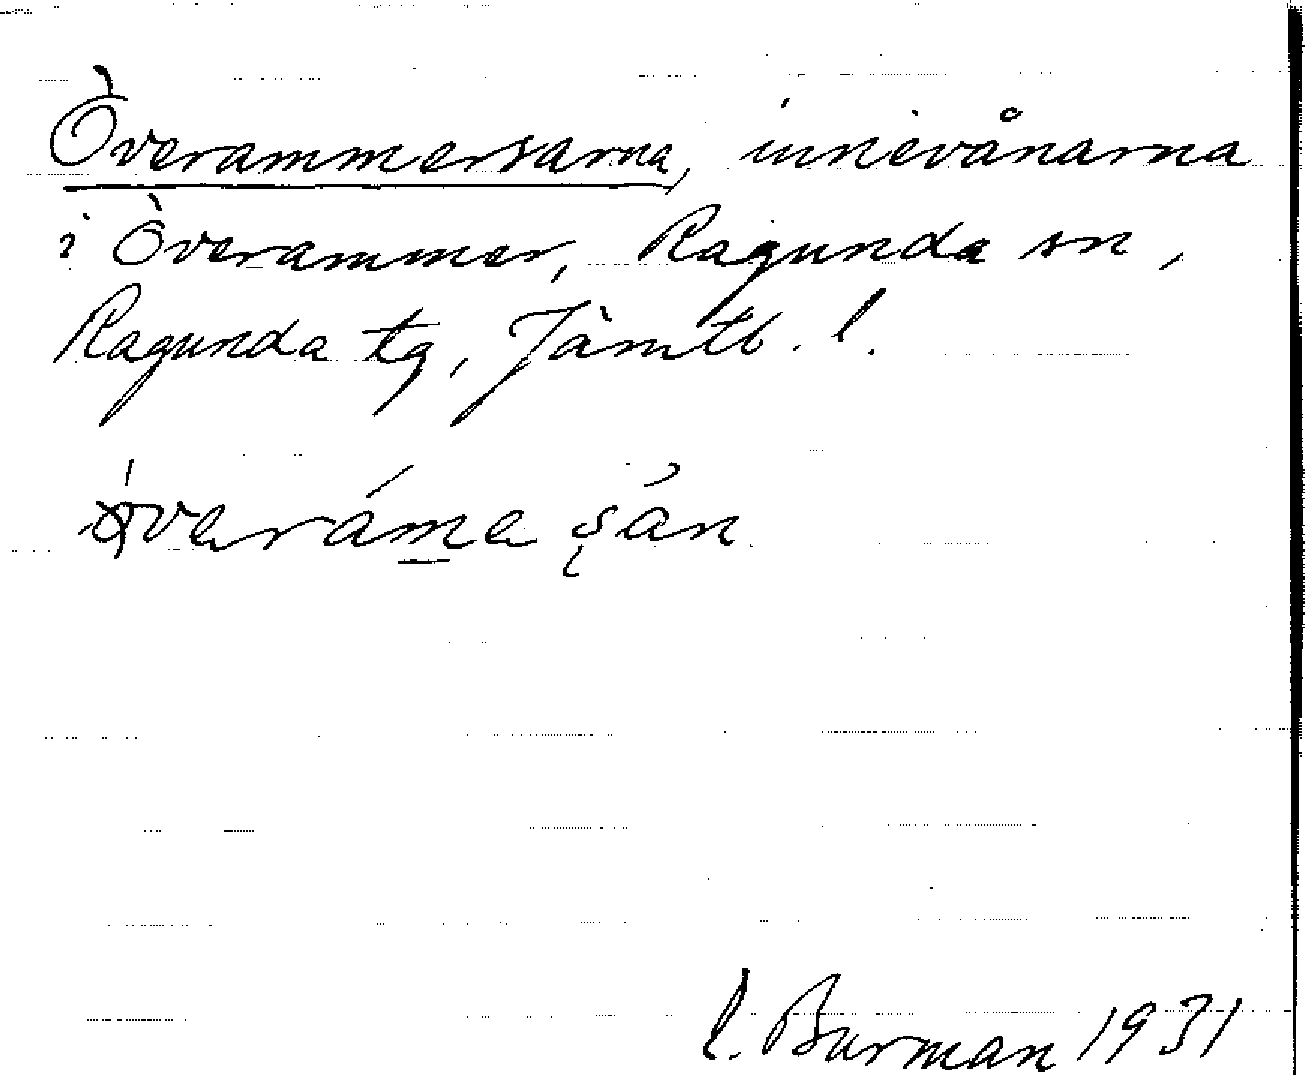 Överammersarna, innevånarna
i Överammer, Ragunda sn,
Ragunda tg, Jämtl. l.
C. Burman 1931